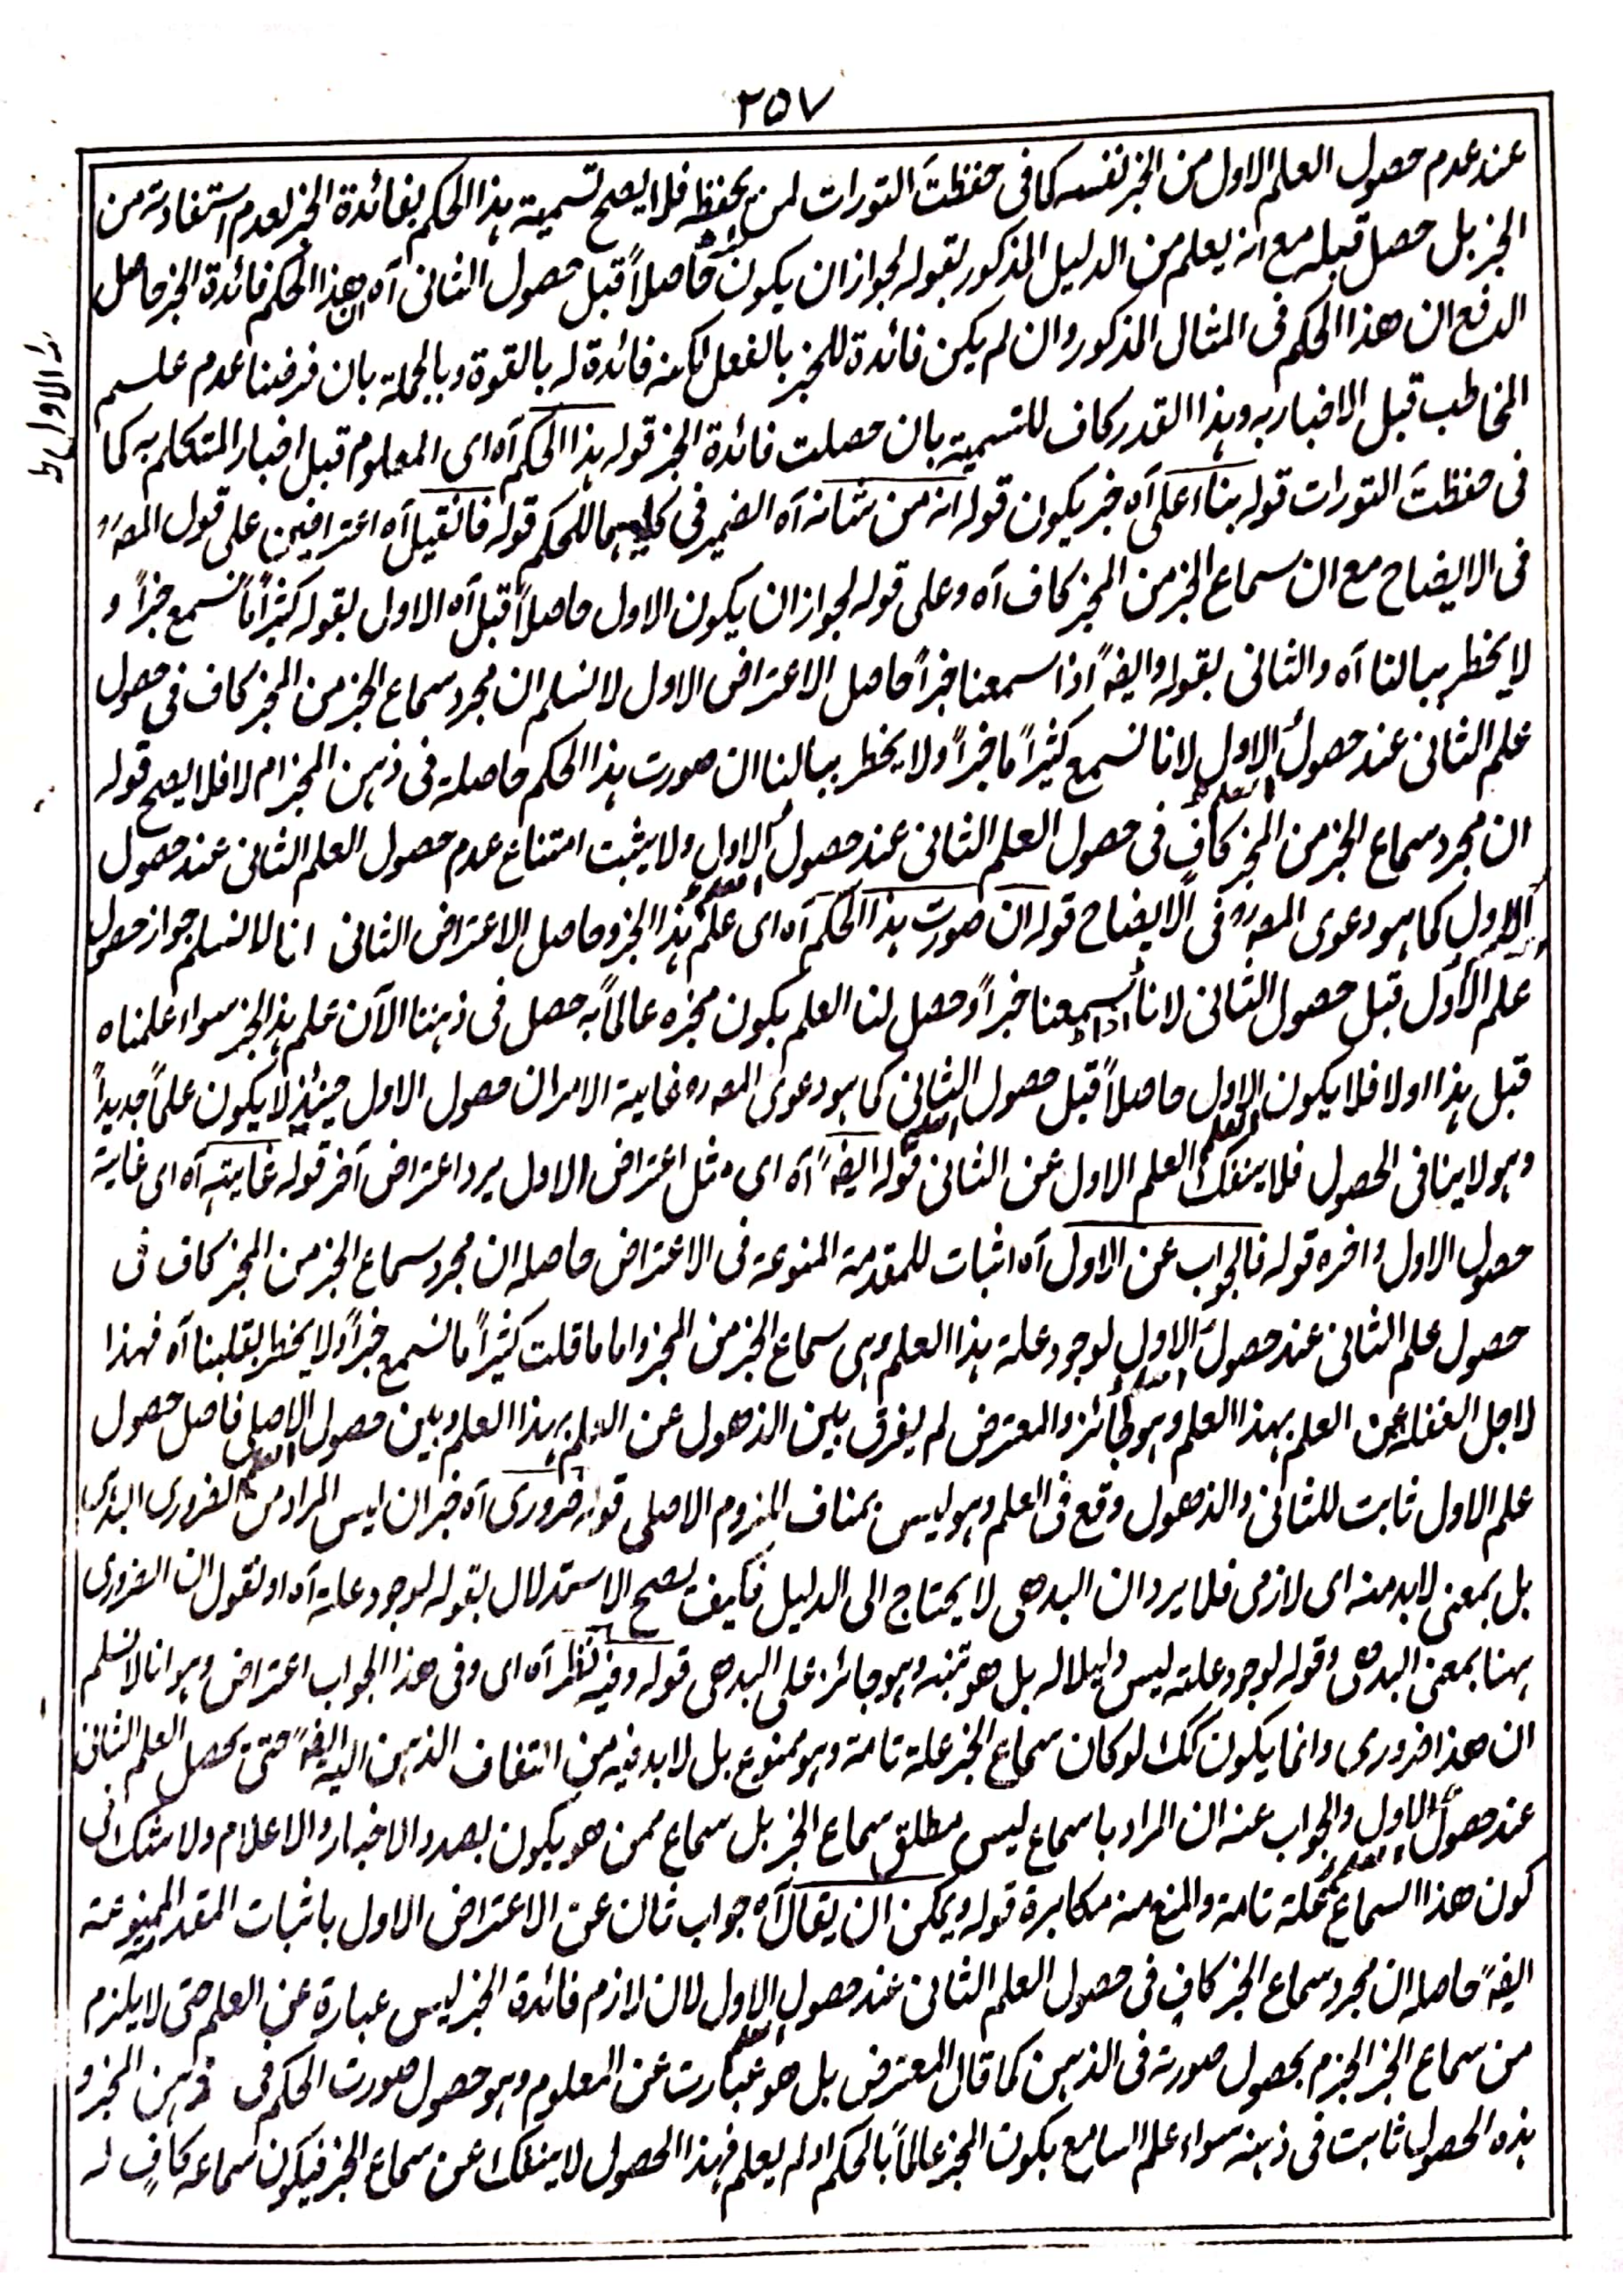 ٢٥٧
عند عدم حصول العلم الاول من الخبر نفسه كما فى حفظتَ التورات لمن يحفظه فلا يصح تسمية ہذا الحكم بفائدة الخبر لعدم استفادته من
الخبر بل حصل قبله مع انہ يعلم من الدليل المذكور بقوله لجواز ان يكون حاصلاً قبل حصول الثانى آه ان هذا الحكم فائدة الخبر حاصل
الدفع ان هذا الحكم فى المثال المذكور وان لم يكن فائدة للخبر بالفعل لكنه فائدة له بالقوة وبالجملة بان فرضنا عدم علم
المخاطب قبل الاخبار به وہذا القدر كاف للتسمية بان حصلت فائدة الخبر قوله ہذا الحكم آه اى المعلوم قبل اخبار المتكلم به كما
فى حفظتَ التورات قوله بناء على آه خبر يكون قوله انه من شانه آه الضمير فى كليهما للحكم قوله فان قيل آه اعتراضين على قول المصرہ
فى الايضاح مع ان سماع الخبر من المخبر كاف آه وعلى قوله لجواز ان يكون الاول حاصلاً قبل آه الاول بقوله كثيراً ما نسمع خبراً و
لا يخطر ببالنا آه والثانى بقوله وايضہً اذا سمعنا خبراً حاصل الاعتراض الاول لا نسلم ان مجرد سماع الخبر من المخبر كاف فى حصول
علم الثانى عند حصول الاول لانا نسمع كثيراً ما خبراً ولا يخطر ببالنا ان صورت ہذا الحكم حاصلة فى ذہن المخبر ام لا فلا يصح قوله
ان مجرد سماع الخبر من المخبر كافٍ فى حصول العلم الثانى عند حصول الاول ولا يثبت امتناع عدم حصول العلم الثانى عند حصول
الاول كما ہو دعوى المصرہ فى الايضاح قوله ان صورت ہذا الحكم آه اى علم ہذا الخبر وحاصل الاعتراض الثانى انا لا نسلم جواز حصول
علم الاول قبل حصول الثانى لانا اذا سمعنا خبراً وحصل لنا العلم بكون مخبره عالماً به حصل فى ذہننا الآن علم ہذا الخبر سواء علمناه
قبل ہذا اولا فلا يكون الاول حاصلاً قبل حصول الثانى كما ہو دعوى المصرہ غاية الامر ان حصول الاول حينئذٍ لا يكون علماً جديداً
وہو لا ينافى الحصول فلا ينفك العلم الاول عن الثانى قوله ايضہً آه اى مثل اعتراض الاول يرد اعتراض آخر قوله غايته آه اى غاية
حصول الاول واخره قوله فالجواب عن الاول آه اثبات للمقدمة الممنوعة فى الاعتراض حاصله ان مجرد سماع الخبر من المخبر كاف فى
حصول علم الثانى عند حصول الاول لوجود علة ہذا العلم وہى سماع الخبر من المخبر واما ما قلت كثيراً ما نسمع خبراً ولا يخطر بقلبنا آه فهذا
لاجل الغفلة عن العلم بہذا العلم وہو جائز والمعترض لم يفرق بين الذهول عن العلم بہذا العلم وبين حصول الاصلى فاصل حصول
علم الاول ثابت للثانى والذهول وقع فى العلم وہو ليس بمناف للزوم الاصلى قوله ضرورى آه خبر ان ليس المراد من الضرورى البدہى
بل بمعنى لابد منه اى لازمى فلا يرد ان البدهى لا يحتاج الى الدليل فكيف يصح الاستدلال بقوله لوجود علة آه او نقول ان الضرورى
ہہنا بمعنى البدهى وقوله لوجود علة ليس دليلا له بل هو تنبه وہو جائز على البدهى قوله وفيه نظر آه اى وفى هذا الجواب اعتراض وہو انا لا نسلم
ان هذا ضرورى وانما يكون كك لو كان سماع الخبر علة تامة وہو ممنوع بل لابد فيه من التفات الذہن اليه ايضہً حتى يحصل العلم الثانى
عند حصول الاول والجواب عنه ان المراد باسماع ليس مطلق سماع الخبر بل سماع ممن هو يكون بصدد الاخبار والاعلام ولا شك فى
كون هذا السماع علة تامة والمنع منه مكابرة قوله ويمكن ان يقال آه جواب ثان عن الاعتراض الاول باثبات المقدمة الممنوعة
ايضہً حاصله ان مجرد سماع الخبر كافٍ فى حصول العلم الثانى عند حصول الاول لان لازم فائدة الخبر ليس عبارة عن العلم حتى لا يلزم
من سماع الخبر الجزم بحصول صورته فى الذہن كما قال المعترض بل هو عبارت عن المعلوم وہو حصول صورت الحكم فى ذہن المخبر و
ہذه الحصول ثابت فى ذہنه سواء علم السامع بكون المخبر عالماً بالحكم او لم يعلم فہذا الحصول لا ينفك عن سماع الخبر فيكون سماعه كافٍ له